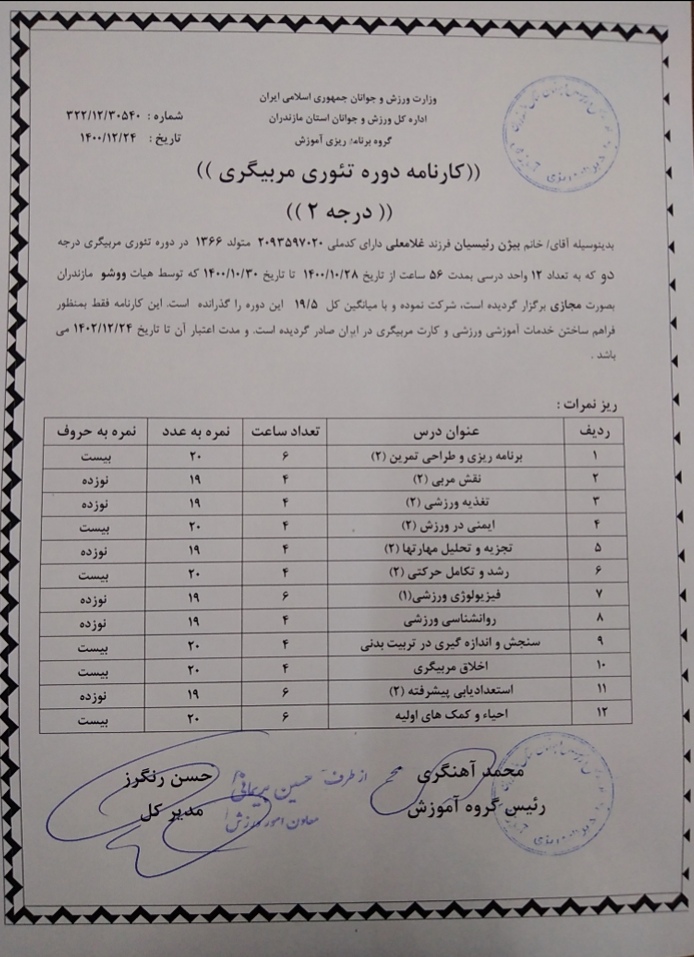 وزارت ورزش و جوانان جمهوری اسلامی ایران
اداره کل ورزش و جوانان استان مازندران
گروه برنامه ریزی آموزش
شماره : ۳۲۲/۱۲/۳۰۵۴۰
تاریخ : ۱۴۰۰/۱۲/۲۴
((کارنامه دوره تئوری مربیگری ))
(( درجه ۲ ))
بدینوسیله آقای/ خانم بیژن رئیسیان فرزند غلامعلی دارای کدملی ۲۰۹۳۵۹۷۰۲۰ متولد ۱۳۶۶ در دوره تئوری مربیگری درجه
دو که به تعداد ۱۲ واحد درسی بمدت ۵۶ ساعت از تاریخ ۱۴۰۰/۱۰/۲۸ تا تاریخ ۱۴۰۰/۱۰/۳۰ که توسط هیات ووشو مازندران
بصورت مجازی برگزار گردیده است، شرکت نموده و با میانگین کل ۱۹/۵ این دوره را گذرانده است. این کارنامه فقط بمنظور
فراهم ساختن خدمات آموزشی ورزشی و کارت مربیگری در ایران صادر گردیده است. و مدت اعتبار آن تا تاریخ ۱۴۰۲/۱۲/۲۴ می
باشد .
ریز نمرات :
ردیف عنوان درس تعداد ساعت نمره به عدد نمره به حروف
۱ برنامه ریزی و طراحی تمرین (۲) ۶ ۲۰ بیست
۲ نقش مربی (۲) ۴ ۱۹ نوزده
۳ تغذیه ورزشی (۲) ۴ ۱۹ نوزده
۴ ایمنی در ورزش (۲) ۴ ۲۰ بیست
۵ تجزیه و تحلیل مهارتها (۲) ۴ ۱۹ نوزده
۶ رشد و تکامل حرکتی (۲) ۴ ۲۰ بیست
۷ فیزیولوژی ورزشی(۱) ۶ ۱۹ نوزده
۸ روانشناسی ورزشی ۴ ۱۹ نوزده
۹ سنجش و اندازه گیری در تربیت بدنی ۴ ۲۰ بیست
۱۰ اخلاق مربیگری ۴ ۲۰ بیست
۱۱ استعدادیابی پیشرفته (۲) ۶ ۱۹ نوزده
۱۲ احیاء و کمک های اولیه ۶ ۲۰ بیست
محمد آهنگری
رئیس گروه آموزش
از طرف حسین
معاون امور ورزش
حسن رنگرز
مدیر کل